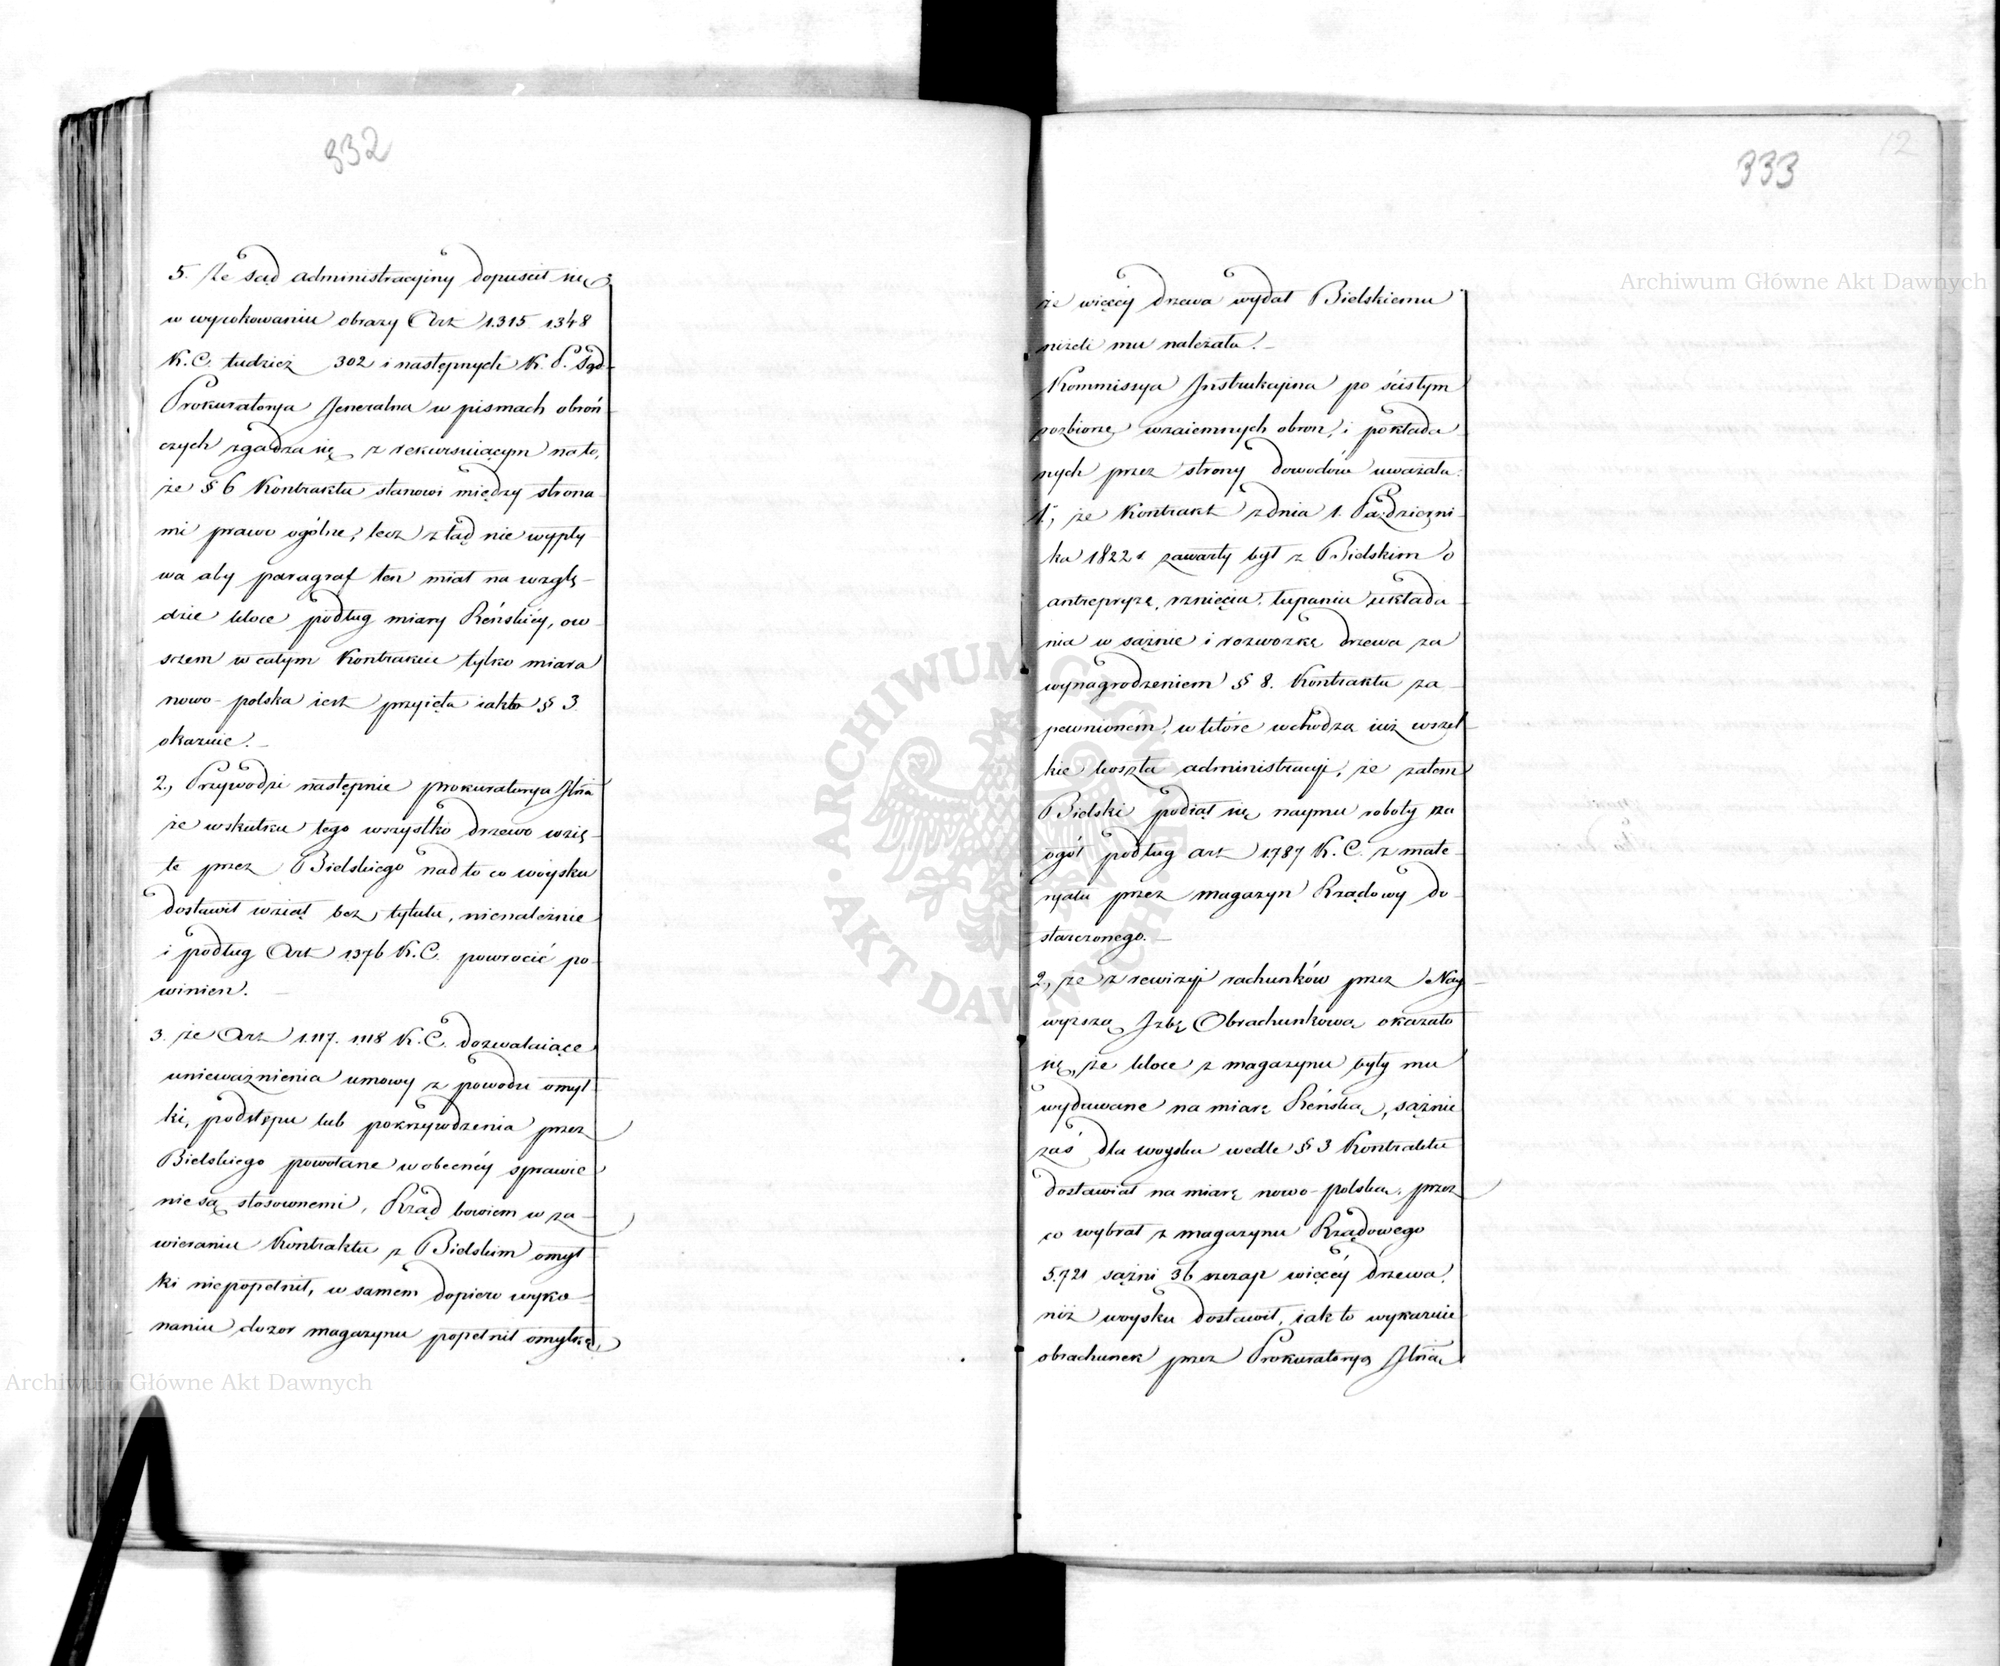 332
5. że sąd administracyiny dopuścił się
w wyrokowaniu obrazy Art 1.315. 1.348
K.C. tudzież 302 i następnych K. P. Sąd
Prokuratorya Jeneralna w pismach obroń
czych zgadza się z rekursuiącym na to,
że § 6 Kontraktu stanowi między strona
mi prawo ogólne, lecz z tąd nie wypły
wa aby paragraf ten miał na wzglę-
dzie kloce podług miary Reńskiéy, ow
szem w całym Kontrakcie tylko miara
nowo-polska iest przyięta iak to § 3
okazuie.
2., Przywodzi następnie prokuratorya Jlna
że wskutku tego wszystko drzewo wzię-
te przez Bielskiego nad to co woysku
dostawił wziął bez tytułu, nienależnie
i podług Art 1.376 K.C. powrócić po-
winien.
3. że Art 1.117. 1.118 K.C. dozwalaiące
unieważnienia umowy z powodu omył
ki, podstępu lub pokrzywdzenia przez
Bielskiego powołane w obecnéy sprawie
nie są stosownemi, Rząd bowiem w za-
wieraniu Kontraktu z Bielskim omył
ki niepopełnił, w samém dopiero wyko-
naniu dozor magazynu popełnił omyłkę,
Archiwum Główne Akt Dawnych
12
333
Archiwum Główne Akt Dawnych
że więcéy drzewa wydał Bielskiemu
niżeli mu należało.
Kommissya Instrukcyina po ścisłym
rozbiorze wzaiemnych obron, i pokłada
nych przez strony dowodów uważała:
1., że Kontrakt z dnia 1. Październi-
ka 1822 r zawarty był z Bielskim o
antrepryzę, rznięcia, łupania układa
nia w sążnie i rozwozkę drzewa za
wynagrodzeniem § 8. Kontraktu za-
pewnioném, w które wchodzą iuż wszel
kie koszta administracyi, że zatém
Bielski podiął się naymu roboty za
ogół podług art 1.787 K.C. z mate-
ryału przez magazyn Rządowy do-
starczonego.
2., że z rewizyi rachunków przez Nay
wyższą Jzbę Obrachunkową okazało
się, że kloce z magazynu były mu
wydawane na miarę Reńską, sążnie
zaś dla woyska wedle § 3 Kontraktu
dostawiał na miarę nowo-polską, przez
co wybrał z magazynu Rządowego
5.721 sążni 36 szczap więcéy drzewa,
niż woysku dostawił, iak to wykazuie
obrachunek przez Prokuratoryą Jlną
ARCHIWUM GŁÓWNE AKT DAWNYCH